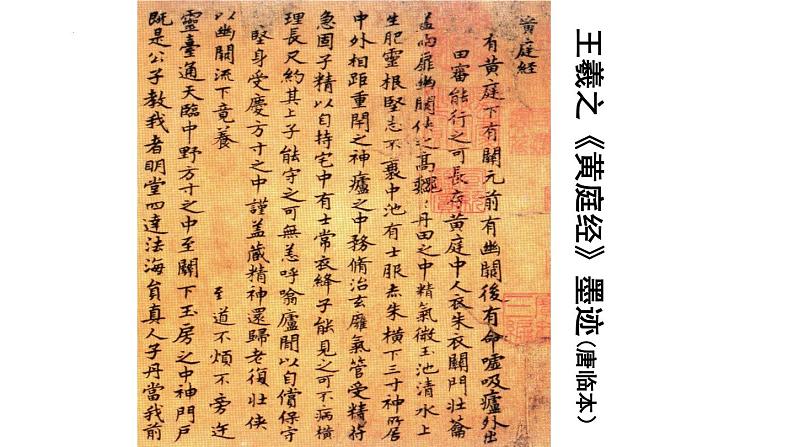 王羲之《黄庭经》墨迹(唐临本)
黄庭经
有黄庭下有關元前有幽闕後有命嘘吸廬外出
田審能行之可長存黄庭中人衣朱衣關門壮籥
盖兩扉幽闕侠之高巍丹田之中精氣微玉池清水上
生肥靈根堅志不衰中池有士服赤朱横下三寸神所居
中外相距重閇之神廬之中務脩治玄廱氣管受精符
急固子精以自持宅中有士常衣絳子能見之可不病横
理長尺約其上子能守之可無恙呼噏廬間以自償保守
堅身受慶方寸之中謹盖藏精神還歸老復壮侠
以幽闕流下竟養 至道不煩不旁迕
靈臺通天臨中野方寸之中至關下玉房之中神門户
既是公子教我者明堂四達法海員真人子丹當我前